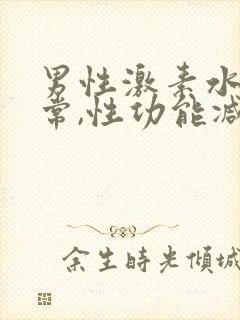 男性激素水
常,性功能减
余生時光傾城